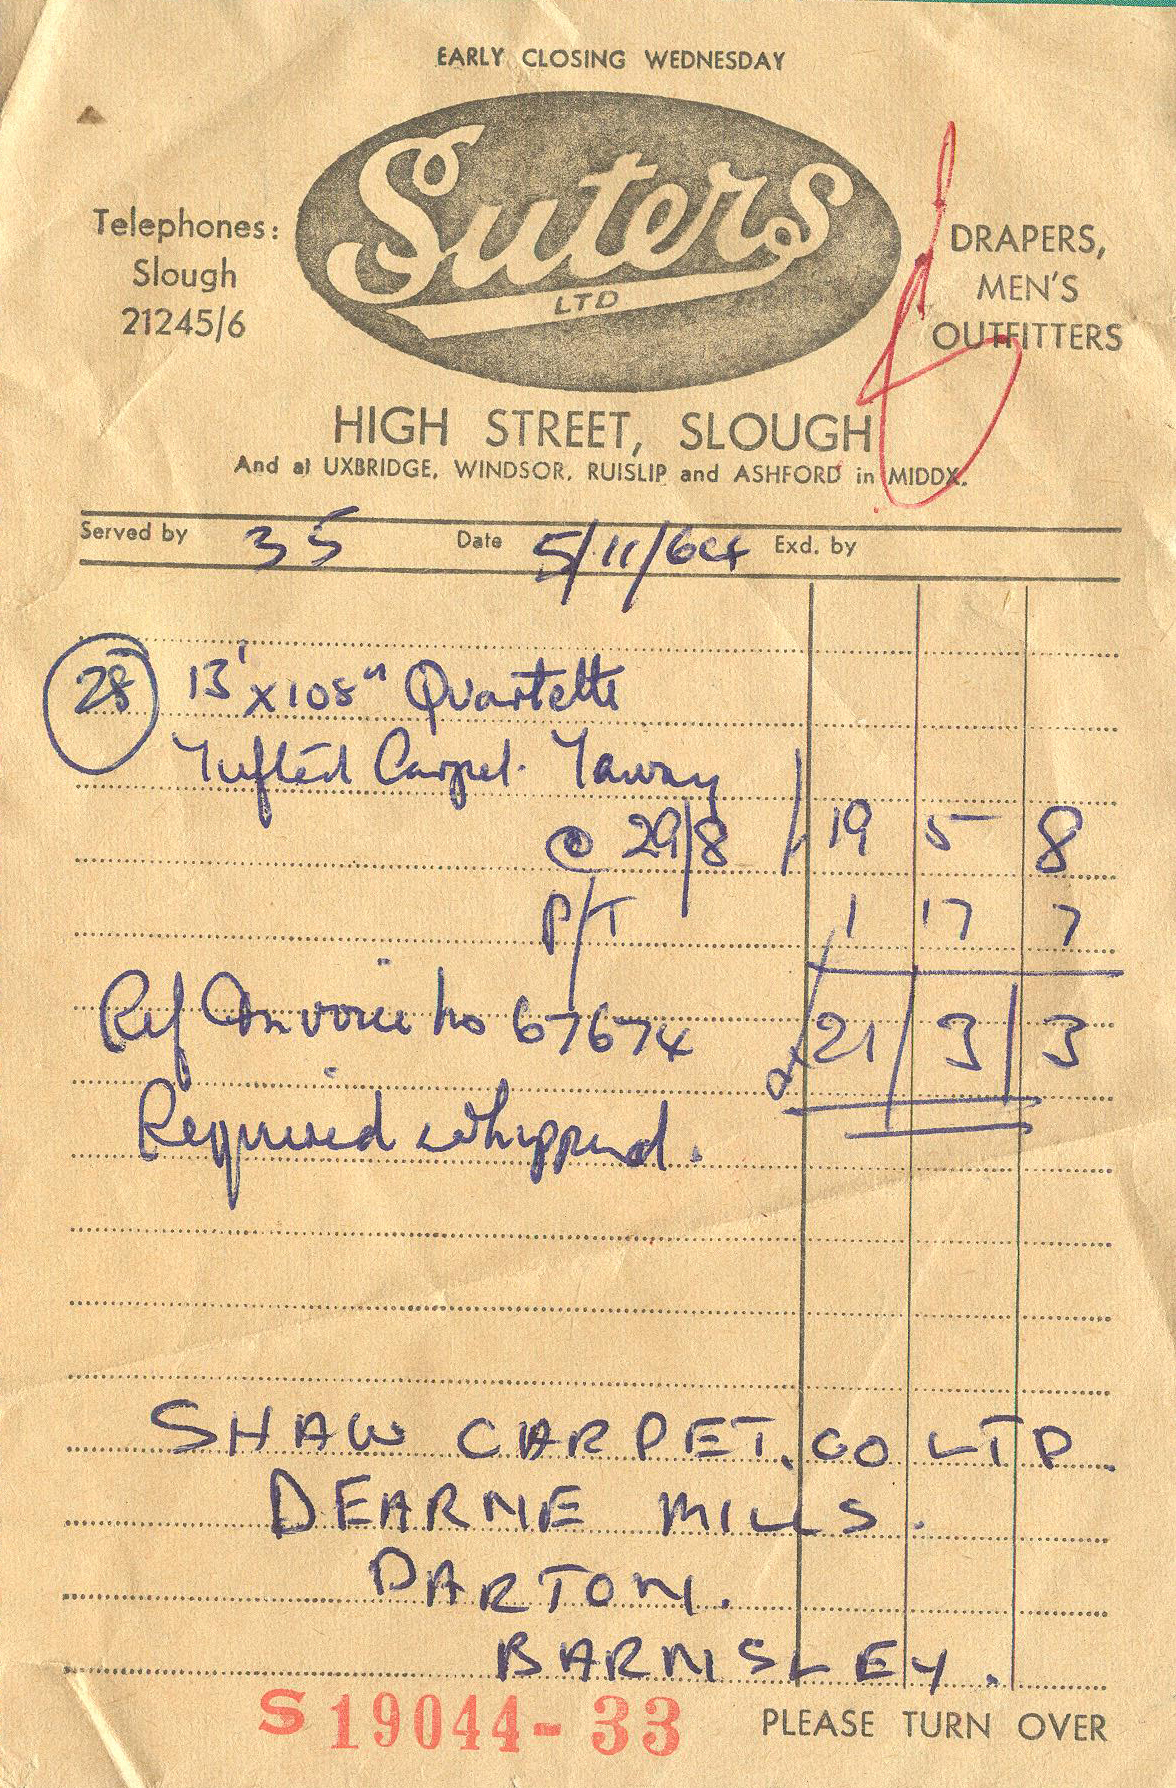 EARLY CLOSING WEDNESDAY
Suters
LTD
Telephones:
Slough
21245/6
DRAPERS,
MEN'S
OUTFITTERS
HIGH STREET, SLOUGH
And at UXBRIDGE, WINDSOR, RUISLIP and ASHFORD in MIDDX.
Served by 35 Date 5/11/64 Exd. by
28 13' x 108" Quartette
Tufted Carpet. Tawny
@ 29/8 19 5 8
P/T 1 17 7
Ref Invoice No 67674 21/3/3
Required whipped.
SHAW CARPET. CO LTD.
DEARNE MILLS.
DARTON.
BARNSLEY.
S 19044-33 PLEASE TURN OVER